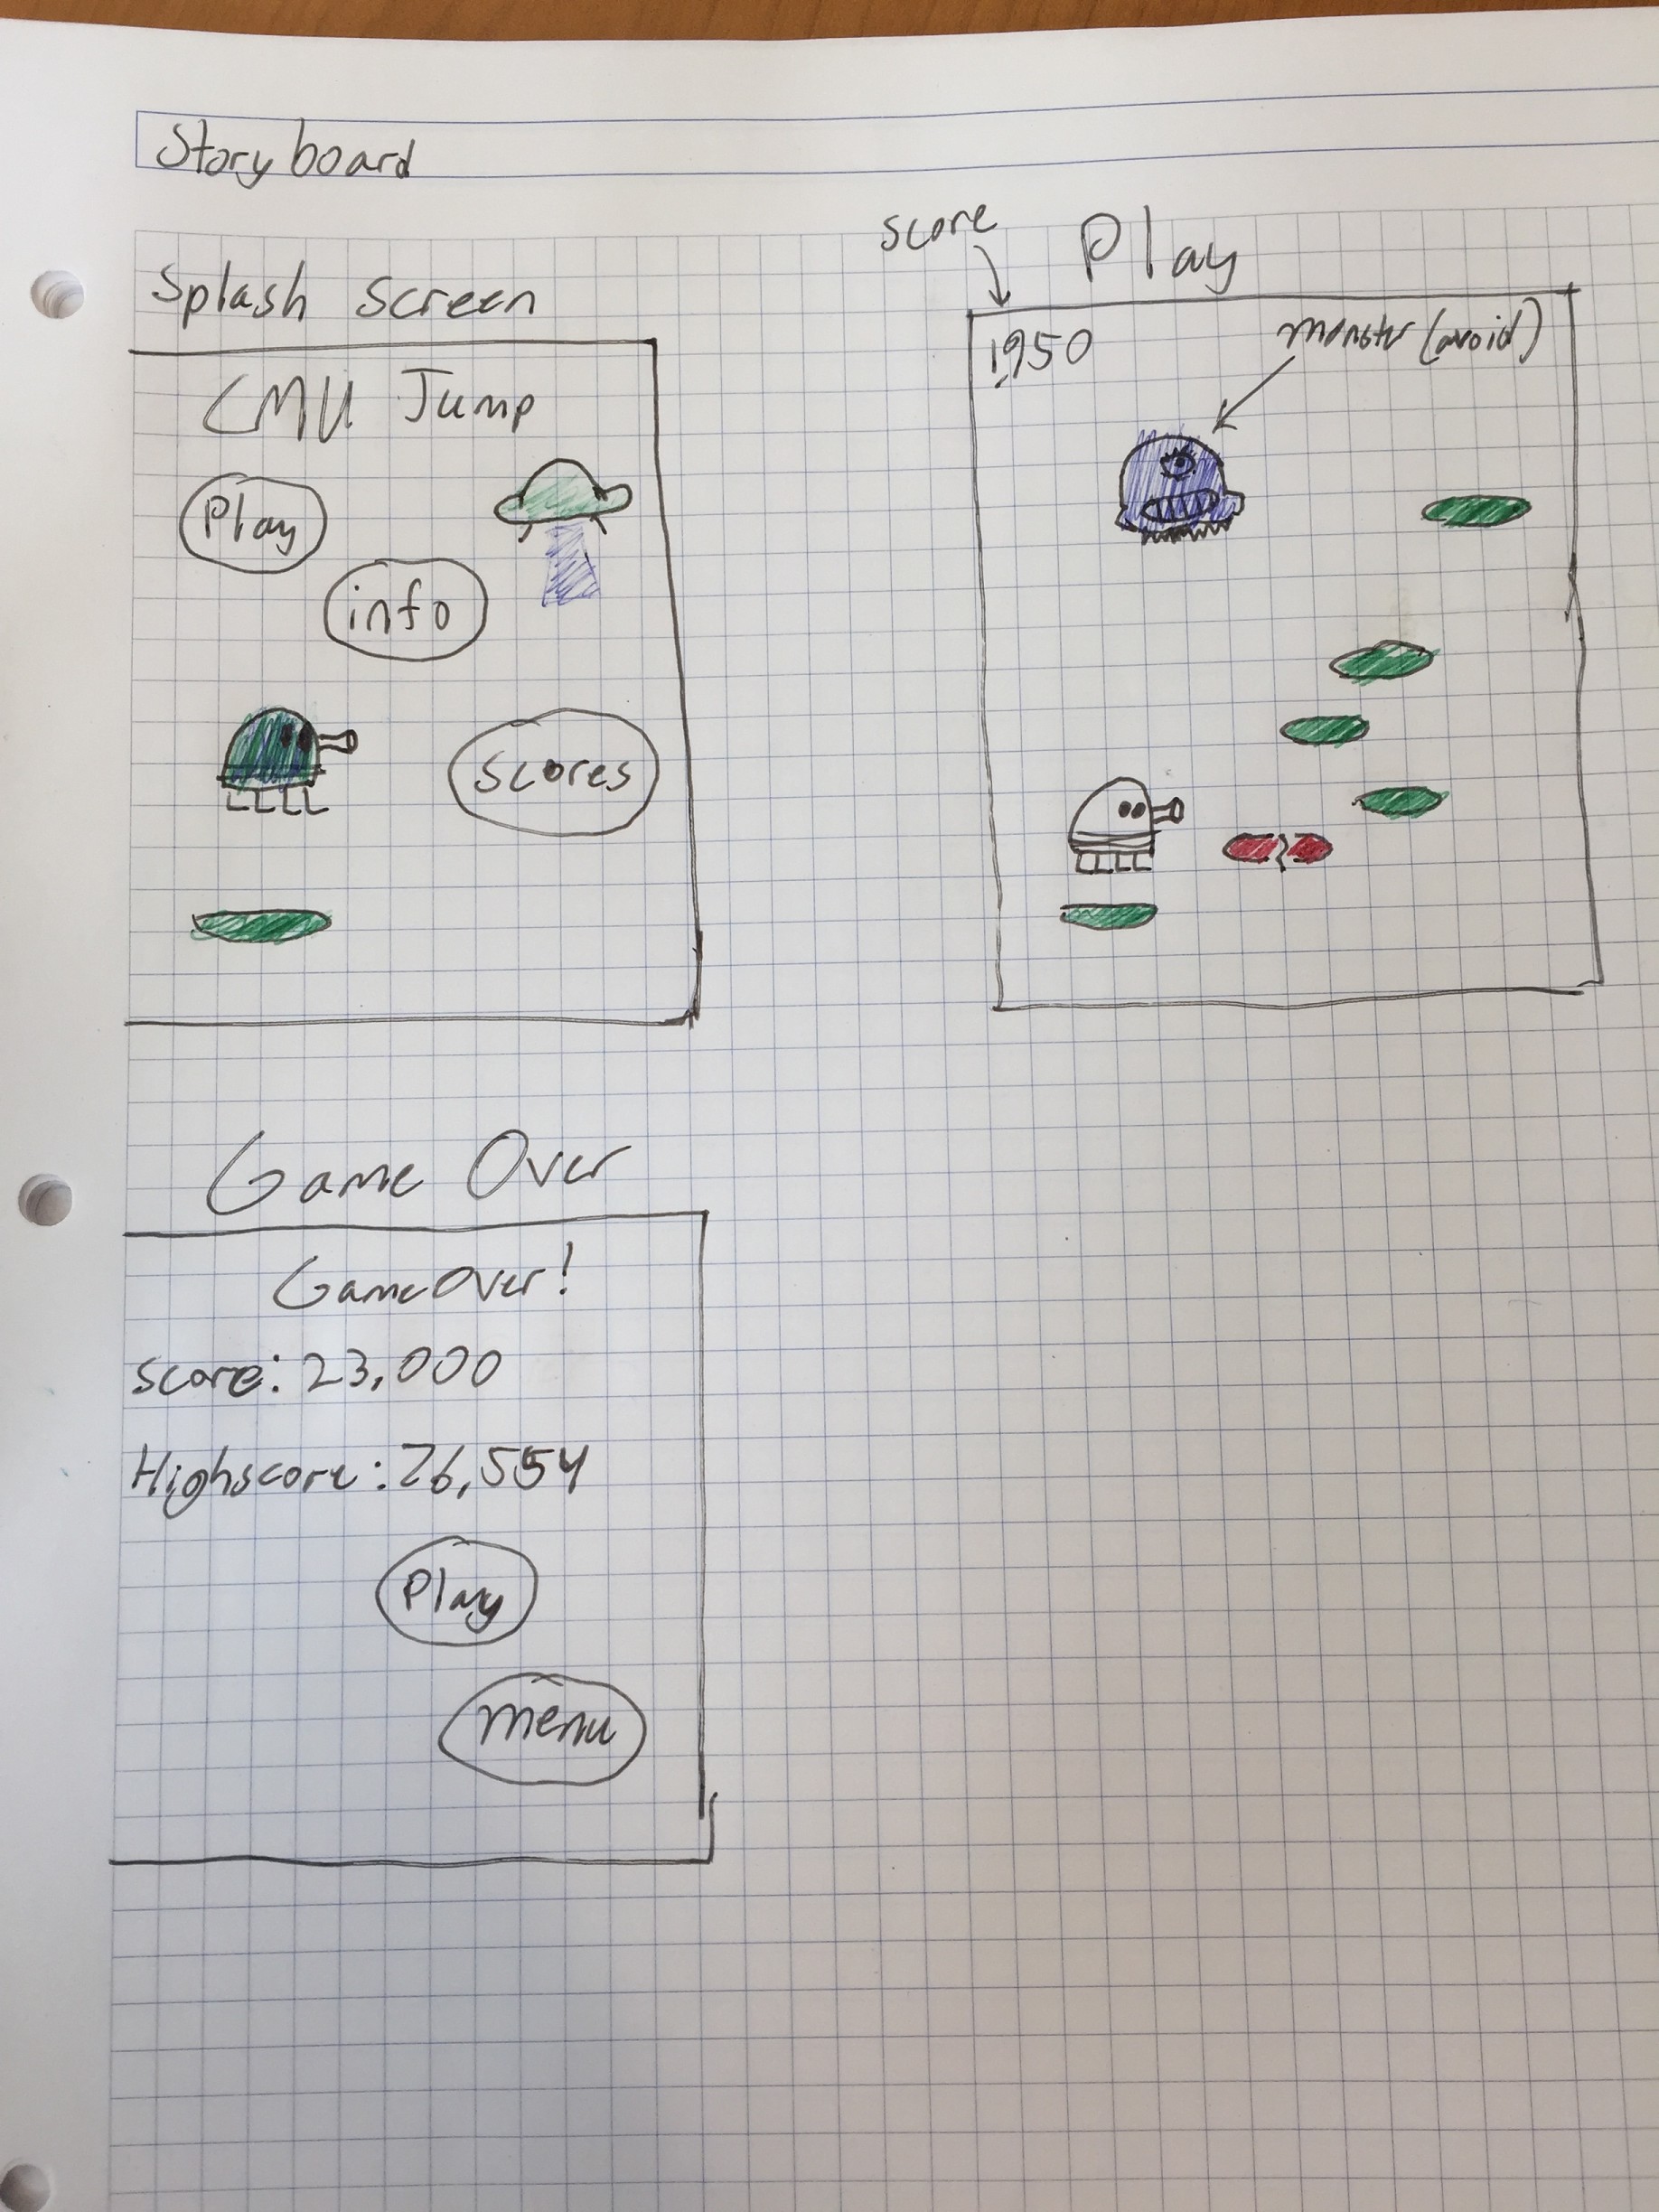 Storyboard
Splash Screen
CMU Jump
Play
info
Scores
score
Play
1,950
monster (avoid)
Game Over
Game Over!
score: 23,000
Highscore: 26,554
Play
menu